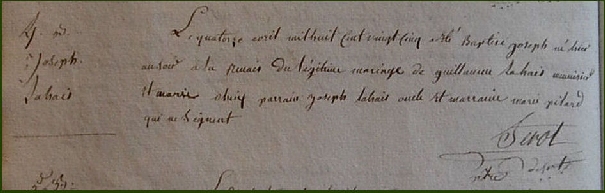 Joseph
Lahais
Le quatorze avril mil huit cent vingt cinq a été Baptisé joseph né hier
au soir à la du légitime mariage de guillaume Lahais
et marie parrain joseph Lahais oncle et marraine marie pilard
qui ne Signent
Serot
ptre